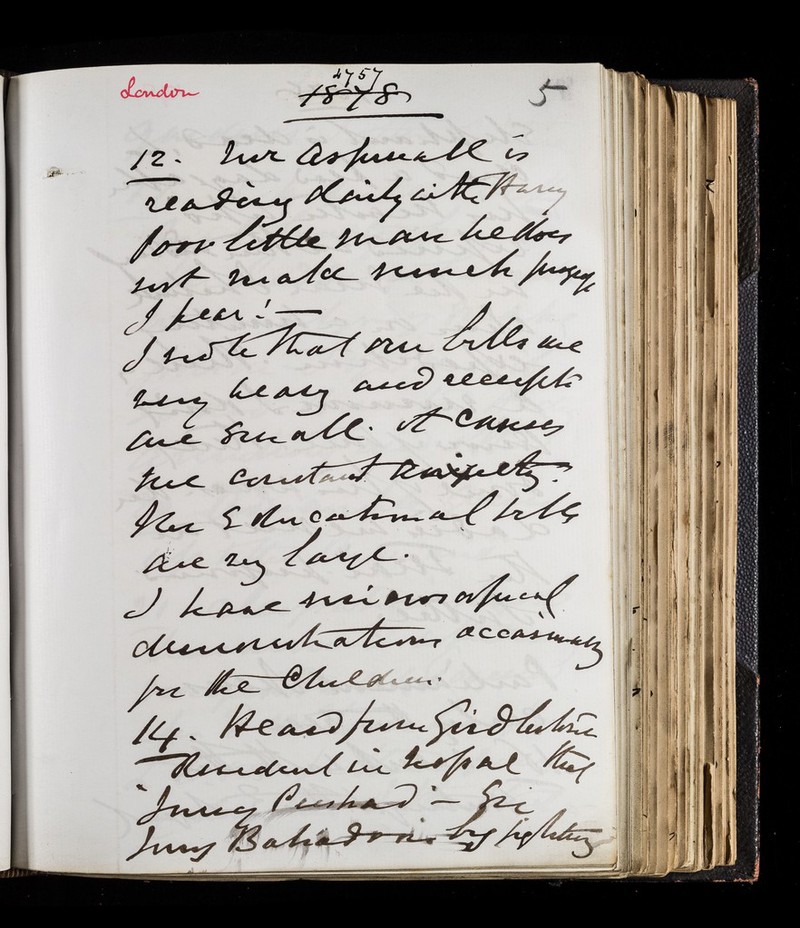 London
4757
1878
5
12. Mr Aspinall is
reading daily with Harry
Poor little man he does
not make much progress
I fear! —
I note that our bills are
very heavy and receipts
are small. It causes
me constant anxiety.
The Educational bills
are very large.
I have microscopical
demonstrations occasionally
for the Children.
14. Heard from Girdlestone
Resident in Nepal that
"Jung Pershad" - Sir
Jung Bahadoor's big fighting